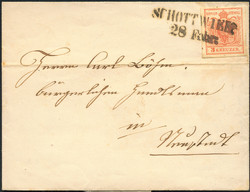 SCHOTTWIEN
28 Febr:
3 KREUZER
Herrn Carl Böhm
bürgerlichen Handelsmann
in
Neustadt